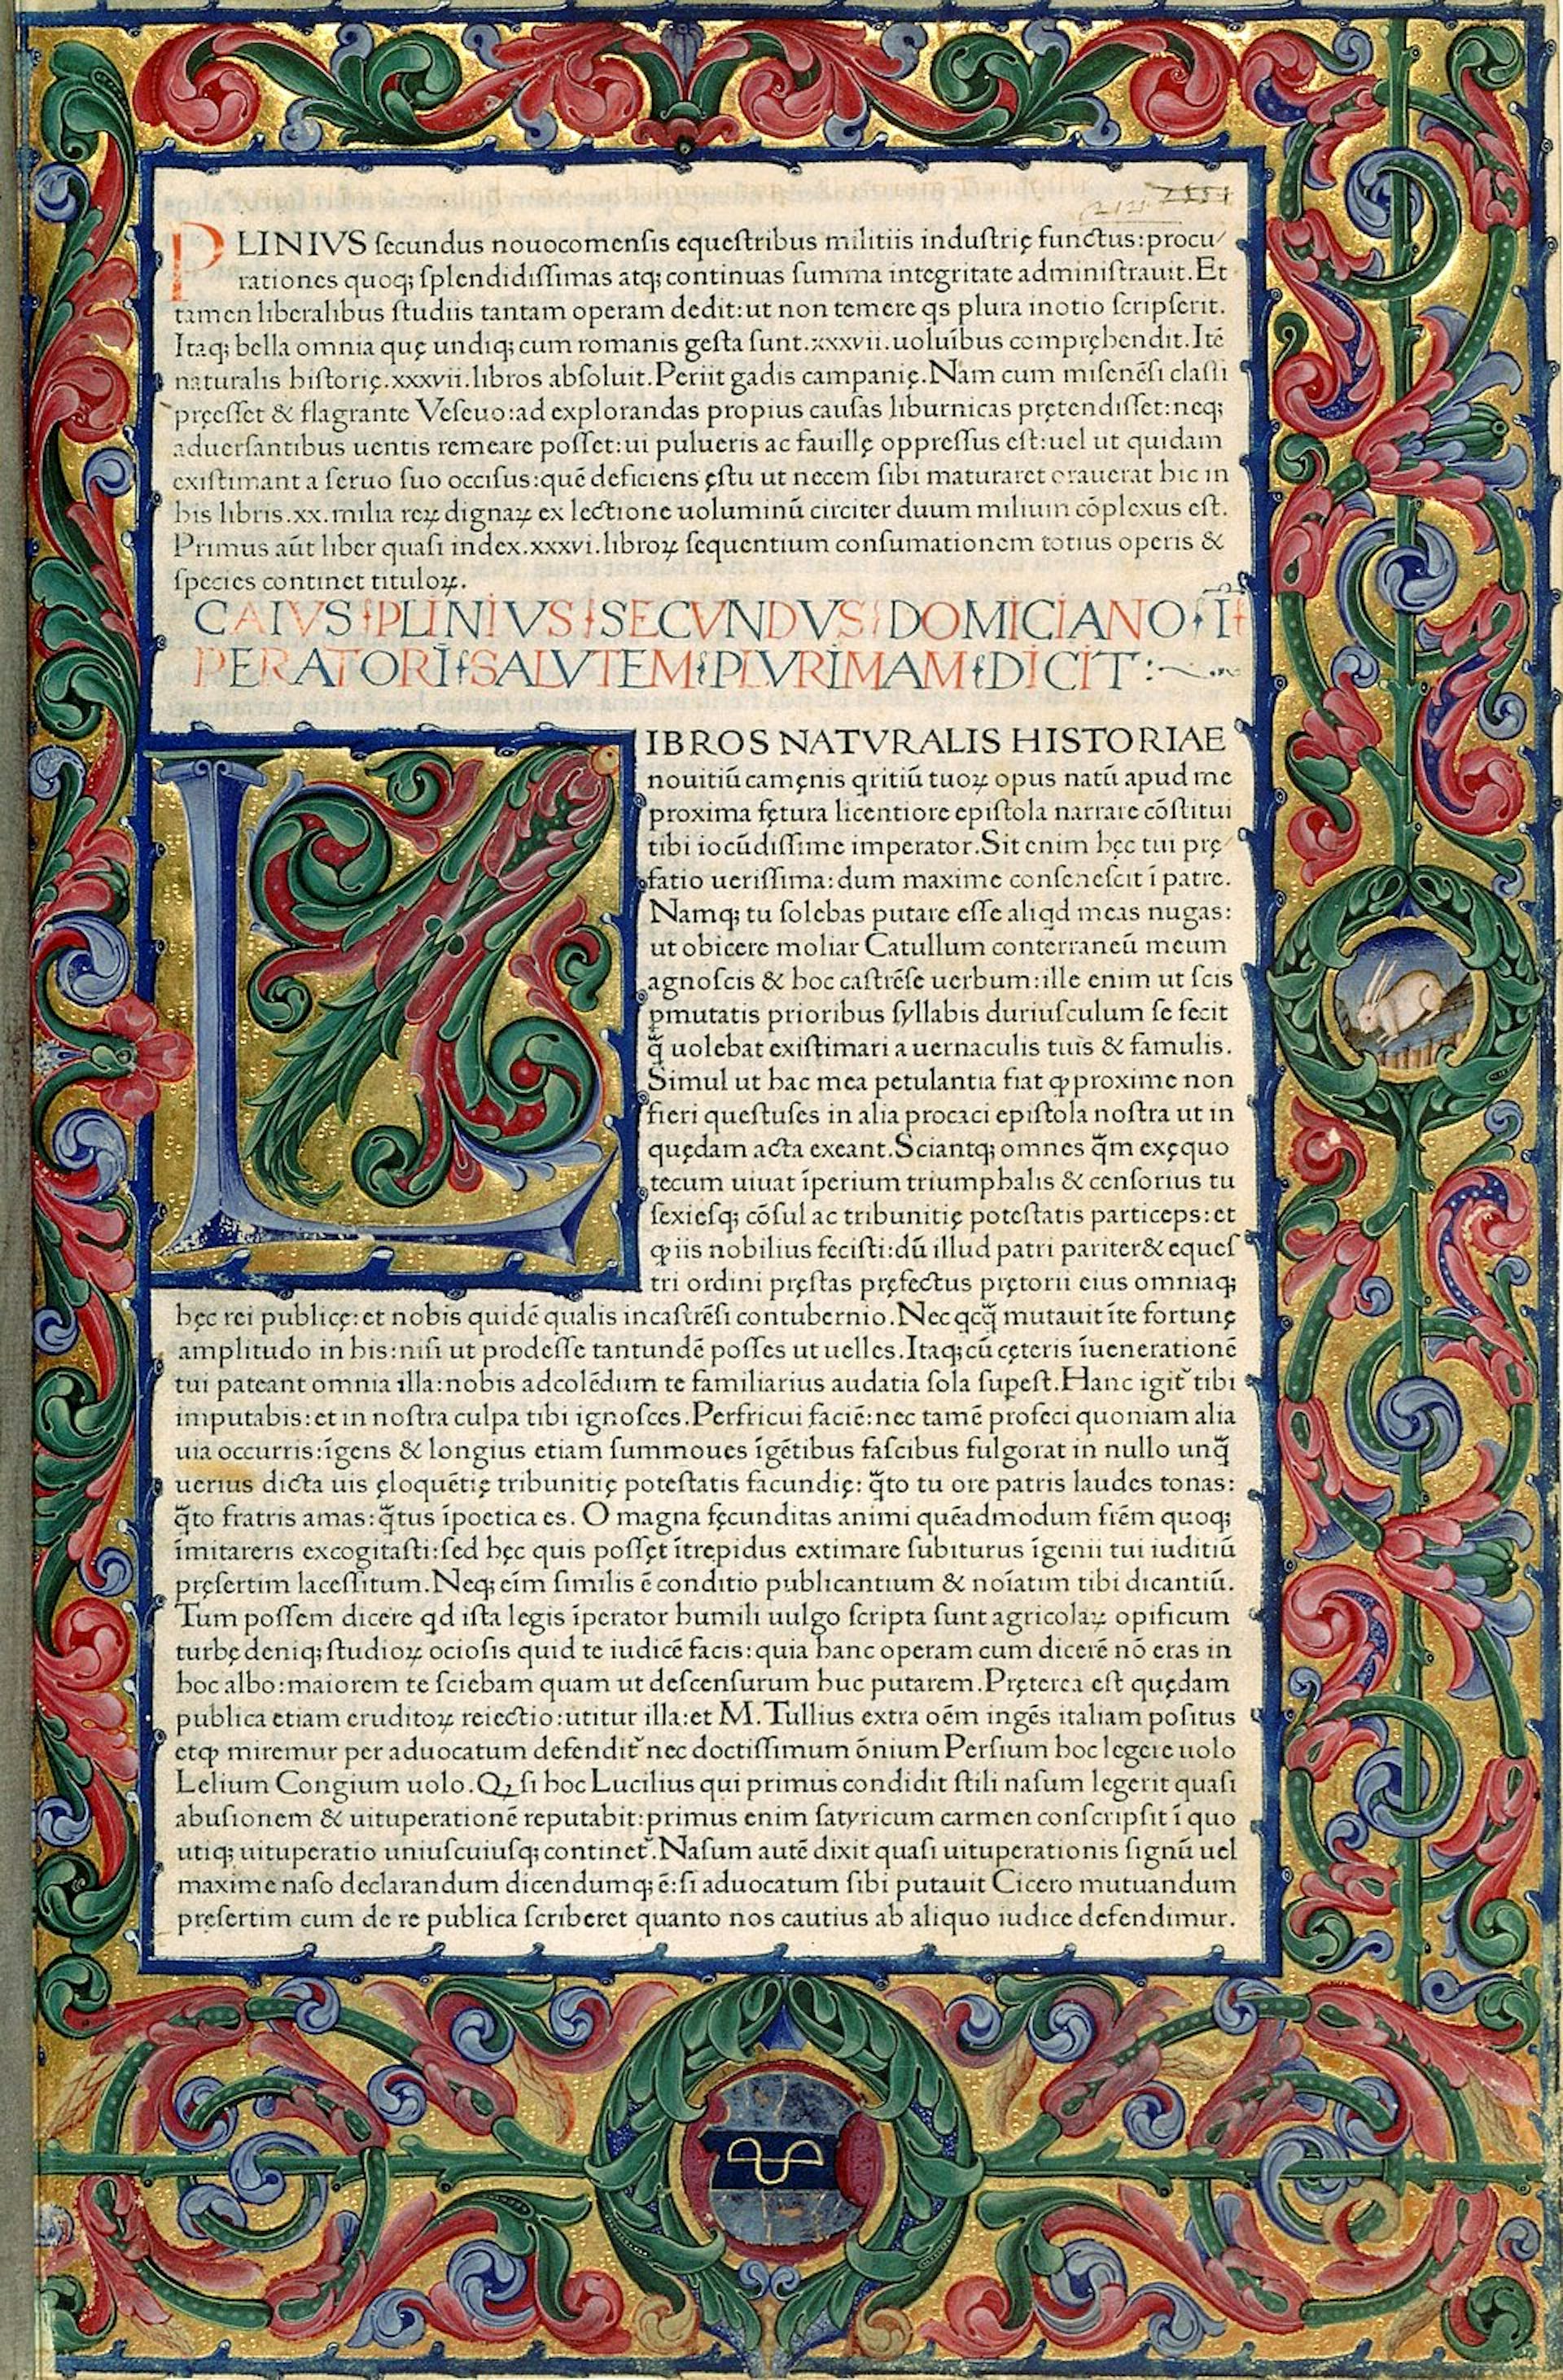 2121 2551
PLINIVS ſecundus nouocomenſis equeſtribus militiis induſtrię functus:procu/
rationes quoq; ſplendidiſſimas atq; continuas ſumma integritate adminiſtrauit.Et
tamen liberalibus ſtudiis tantam operam dedit:ut non temere qs plura inotio ſcripſerit.
Itaq; bella omnia quę undiq; cum romanis geſta ſunt.xxxvii.uoluībus compręhendit.Itē
naturalis hiſtorię.xxxvii.libros abſoluit.Periit gadis campanię.Nam cum miſenēſi claſſi
pręeſſet & flagrante Veſeuo:ad explorandas propius cauſas liburnicas prętendiſſet:neq;
aduerſantibus uentis remeare poſſet:ui pulueris ac fauillę oppreſſus eſt:uel ut quidam
exiſtimant a ſeruo ſuo occiſus:quē deficiens ęſtu ut necem ſibi maturaret orauerat hic in
his libris.xx.milia reꝝ dignaꝝ ex lectione uoluminū circiter duum milium cōplexus eſt.
Primus aūt liber quaſi index.xxxvi.libroꝝ ſequentium conſumationem totius operis &
ſpecies continet tituloꝝ.
CAIVS PLINIVS SECVNDVS DOMICIANO I
PERATORI SALVTEM PLVRIMAM DICIT:~
LIBROS NATVRALIS HISTORIAE
nouitiū camęnis qritiū tuoꝝ opus natū apud me
proxima fętura licentiore epiſtola narrare cōſtitui
tibi iocūdiſſime imperator.Sit enim hęc tui prę/
fatio ueriſſima:dum maxime conſeneſcit ī patre.
Namq; tu ſolebas putare eſſe aliqd meas nugas:
ut obicere moliar Catullum conterraneū meum
agnoſcis & hoc caſtrēſe uerbum:ille enim ut ſcis
ꝑmutatis prioribus ſyllabis duriuſculum ſe fecit
q̄ uolebat exiſtimari a uernaculis tuis & famulis.
Simul ut hac mea petulantia fiat ꝙ proxime non
fieri queſtuſes in alia procaci epiſtola noſtra ut in
quędam acta exeant.Sciantq; omnes q̄m exęquo
tecum uiuat īperium triumphalis & cenſorius tu
ſexieſq; cōſul ac tribunitię poteſtatis particeps:et
ꝙ iis nobilius feciſti:dū illud patri pariter& equeſ
tri ordini pręſtas pręfectus prętorii eius omniaq;
hęc rei publicę:et nobis quidē qualis incaſtrēſi contubernio.Nec qcq̄ mutauit īte fortunę
amplitudo in his:niſi ut prodeſſe tantundē poſſes ut uelles.Itaq; cū cęteris īuenerationē
tui pateant omnia illa:nobis adcolēdum te familiarius audatia ſola ſupeſt.Hanc igit᷑ tibi
imputabis:et in noſtra culpa tibi ignoſces.Perfricui faciē:nec tamē profeci quoniam alia
uia occurris:īgens & longius etiam ſummoues īgētibus faſcibus fulgorat in nullo unq̄
uerius dicta uis ęloquētię tribunitię poteſtatis facundię: q̄to tu ore patris laudes tonas:
q̄to fratris amas:q̄tus īpoetica es. O magna fęcunditas animi quēadmodum frēm quoq;
īmitareris excogitaſti:ſed hęc quis poſſęt ītrepidus extimare ſubiturus īgenii tui iuditiū
pręſertim laceſſitum.Neq; eīm ſimilis ē conditio publicantium & noīatim tibi dicantiū.
Tum poſſem dicere qd iſta legis īperator humili uulgo ſcripta ſunt agricolaꝝ opificum
turbę deniq; ſtudioꝝ ocioſis quid te iudicē facis:quia hanc operam cum dicerē nō eras in
hoc albo:maiorem te ſciebam quam ut deſcenſurum huc putarem.Pręterea eſt quędam
publica etiam eruditoꝝ reiectio:utitur illa:et M.Tullius extra oēm ingēs italiam poſitus
etꝙ miremur per aduocatum defendit᷑ nec doctiſſimum ōnium Perſium hoc legere uolo
Lelium Congium uolo.Qꝫ ſi hoc Lucilius qui primus condidit ſtili naſum legerit quaſi
abuſionem & uituperationē reputabit:primus enim ſatyricum carmen conſcripſit ī quo
utiq; uituperatio uniuſcuiuſq; continet᷑.Naſum autē dixit quaſi uituperationis ſignū uel
maxime naſo declarandum dicendumq; ē:ſi aduocatum ſibi putauit Cicero mutuandum
preſertim cum de re publica ſcriberet quanto nos cautius ab aliquo iudice defendimur.